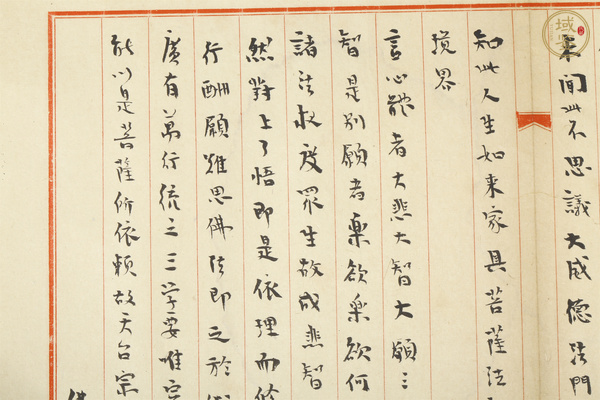 來聞此不思議大威德法門
知此人生如来家具菩薩法
境界
言心體者大悲大智大願三
智是别願者樂欲樂欲何
諸法救度眾生故成悲智
然對上了悟即是依理而修
行酬願難思佛法即之於
廣有萬行統之三学要唯
能以是菩薩所依賴故天台宗